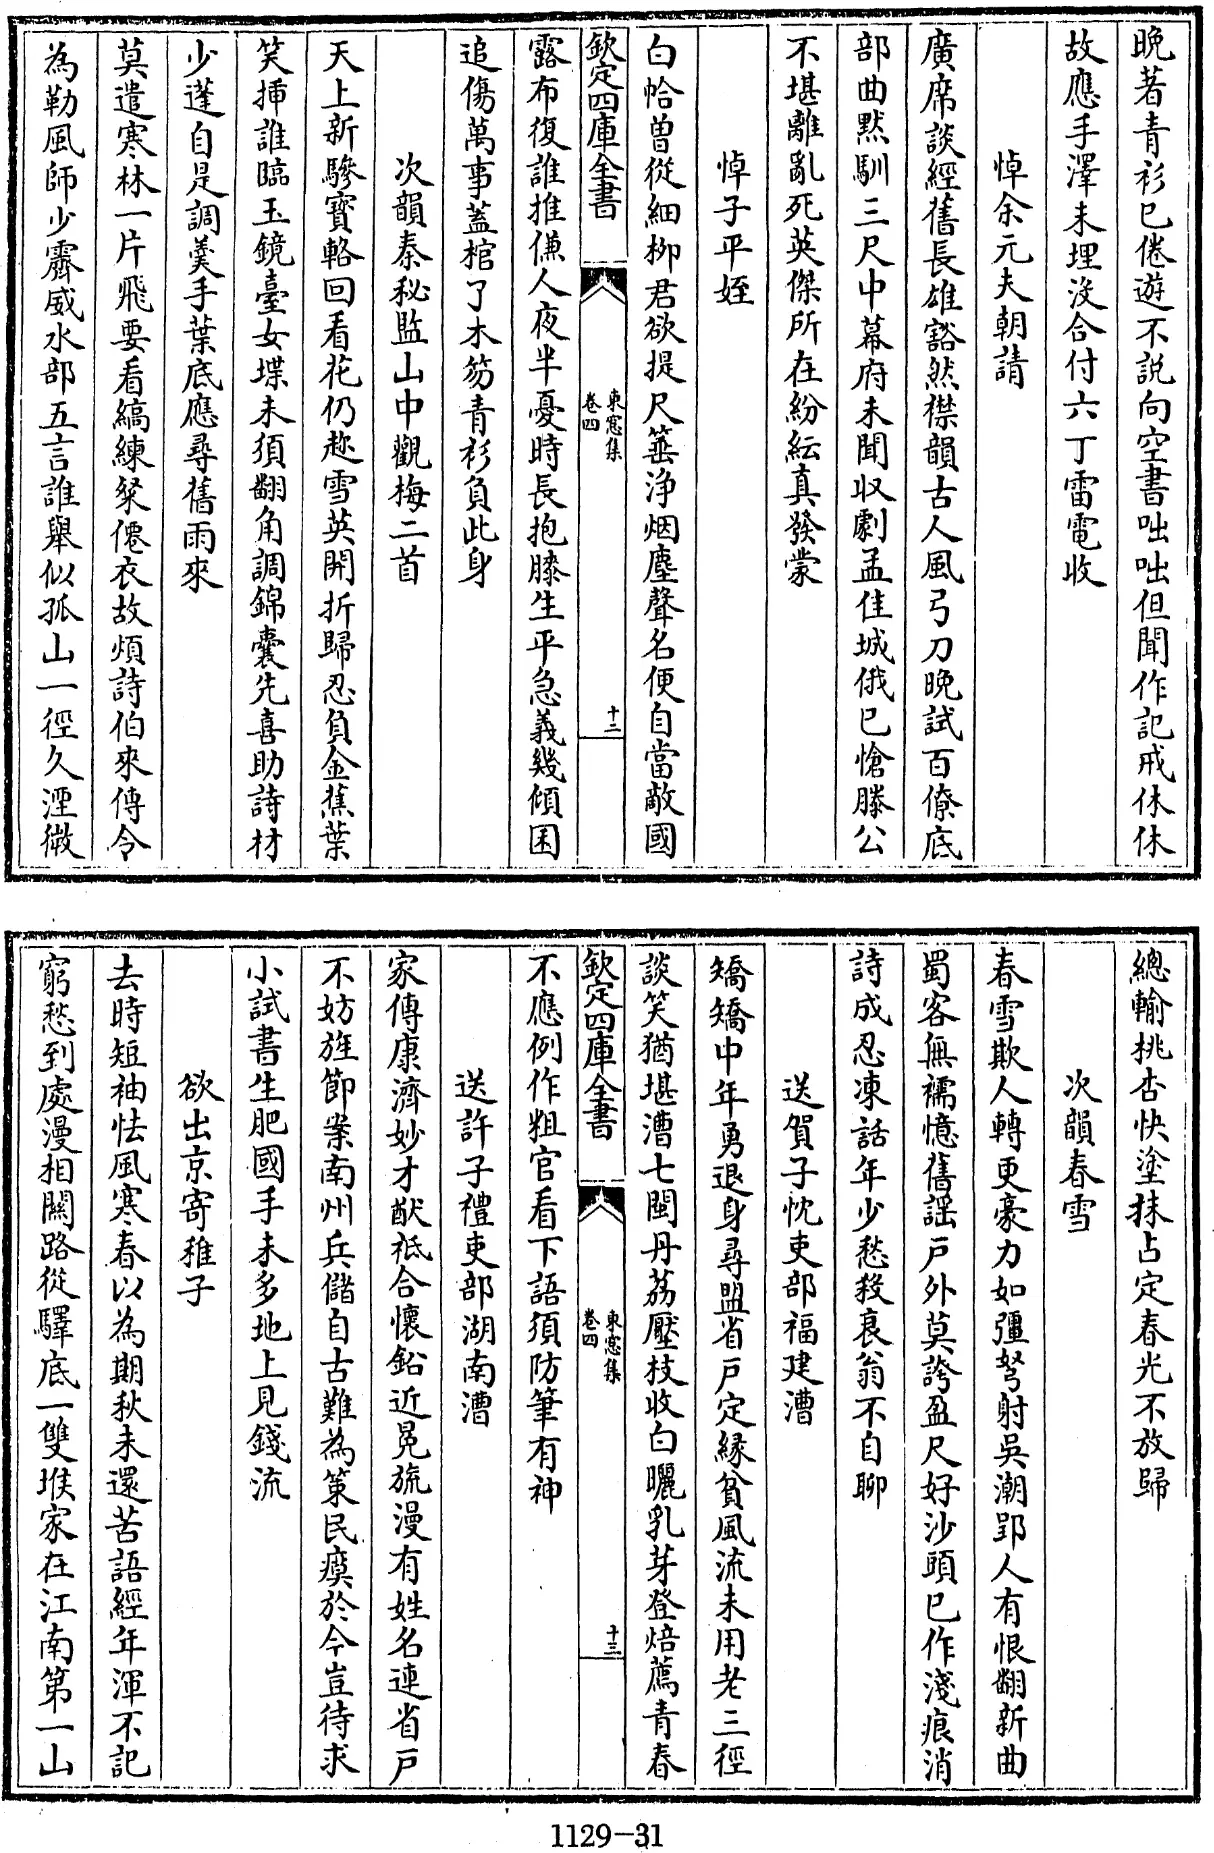 晚著青衫已倦遊不説向空書咄咄但聞作記戒休休
故應手澤未埋没合付六丁雷電收
悼余元夫朝請
廣席談經舊長雄豁然襟韻古人風弓刀晚試百僚底
部曲黙馴三尺中幕府未聞収劇孟佳城俄已愴滕公
不堪離亂死英傑所在紛紜真發蒙
悼子平姪
白恰曾從細栁君欲提尺箠浄烟塵聲名便自當敵國
欽定四庫全書
東窓集
卷四
十二
露布復誰推傔人夜半憂時長抱膝生平急義幾傾囷
追傷萬事蓋棺了木笏青衫負此身
次韻秦秘監山中觀梅二首
天上新驂寳輅回看花仍趂雪英開折歸忍負金蕉葉
笑揷誰臨玉鏡臺女堞未須翻角調錦囊先喜助詩材
少蓬自是調羮手葉底應尋舊雨來
莫遣寒林一片飛要看縞練粲僊衣故煩詩伯來傳令
為勒風師少霽威水部五言誰舉似孤山一徑久湮微
總輸桃杏快塗抹占定春光不放歸
次韻春雪
春雪欺人轉更豪力如彊弩射吳潮郢人有恨翻新曲
蜀客無襦憶舊謡戸外莫誇盈尺好沙頭已作淺痕消
詩成忍凍話年少愁殺衰翁不自聊
送賀子忱吏部福建漕
矯矯中年勇退身尋盟省戸定緣貧風流未用老三徑
談笑猶堪漕七閩丹荔壓枝收白曬乳芽登焙薦青春
欽定四庫全書
東窓集
卷四
十三
不應例作粗官看下語須防筆有神
送許子禮吏部湖南漕
家傳康濟妙才猷祗合懷鉛近冕旒漫有姓名連省戸
不妨旌節案南州兵儲自古難為策民瘼於今豈待求
小試書生肥國手未多地上見錢流
欲出京寄稚子
去時短袖怯風寒春以為期秋未還苦語經年渾不記
窮愁到處漫相關路從驛底一雙堠家在江南第一山
1129-31